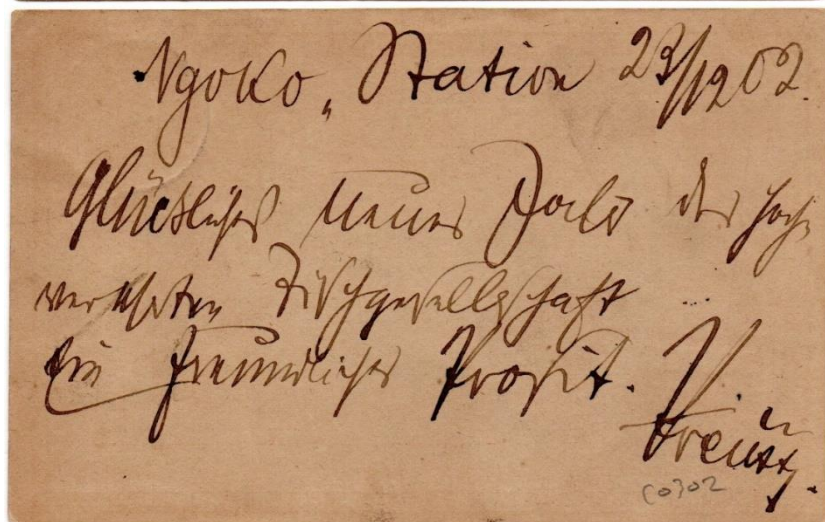 Ngoko, Station 23/12 02.
Glückliches neues Jahr der hoch
verehrten Tischgesellschaft
Ein freundliches Prosit.
co302